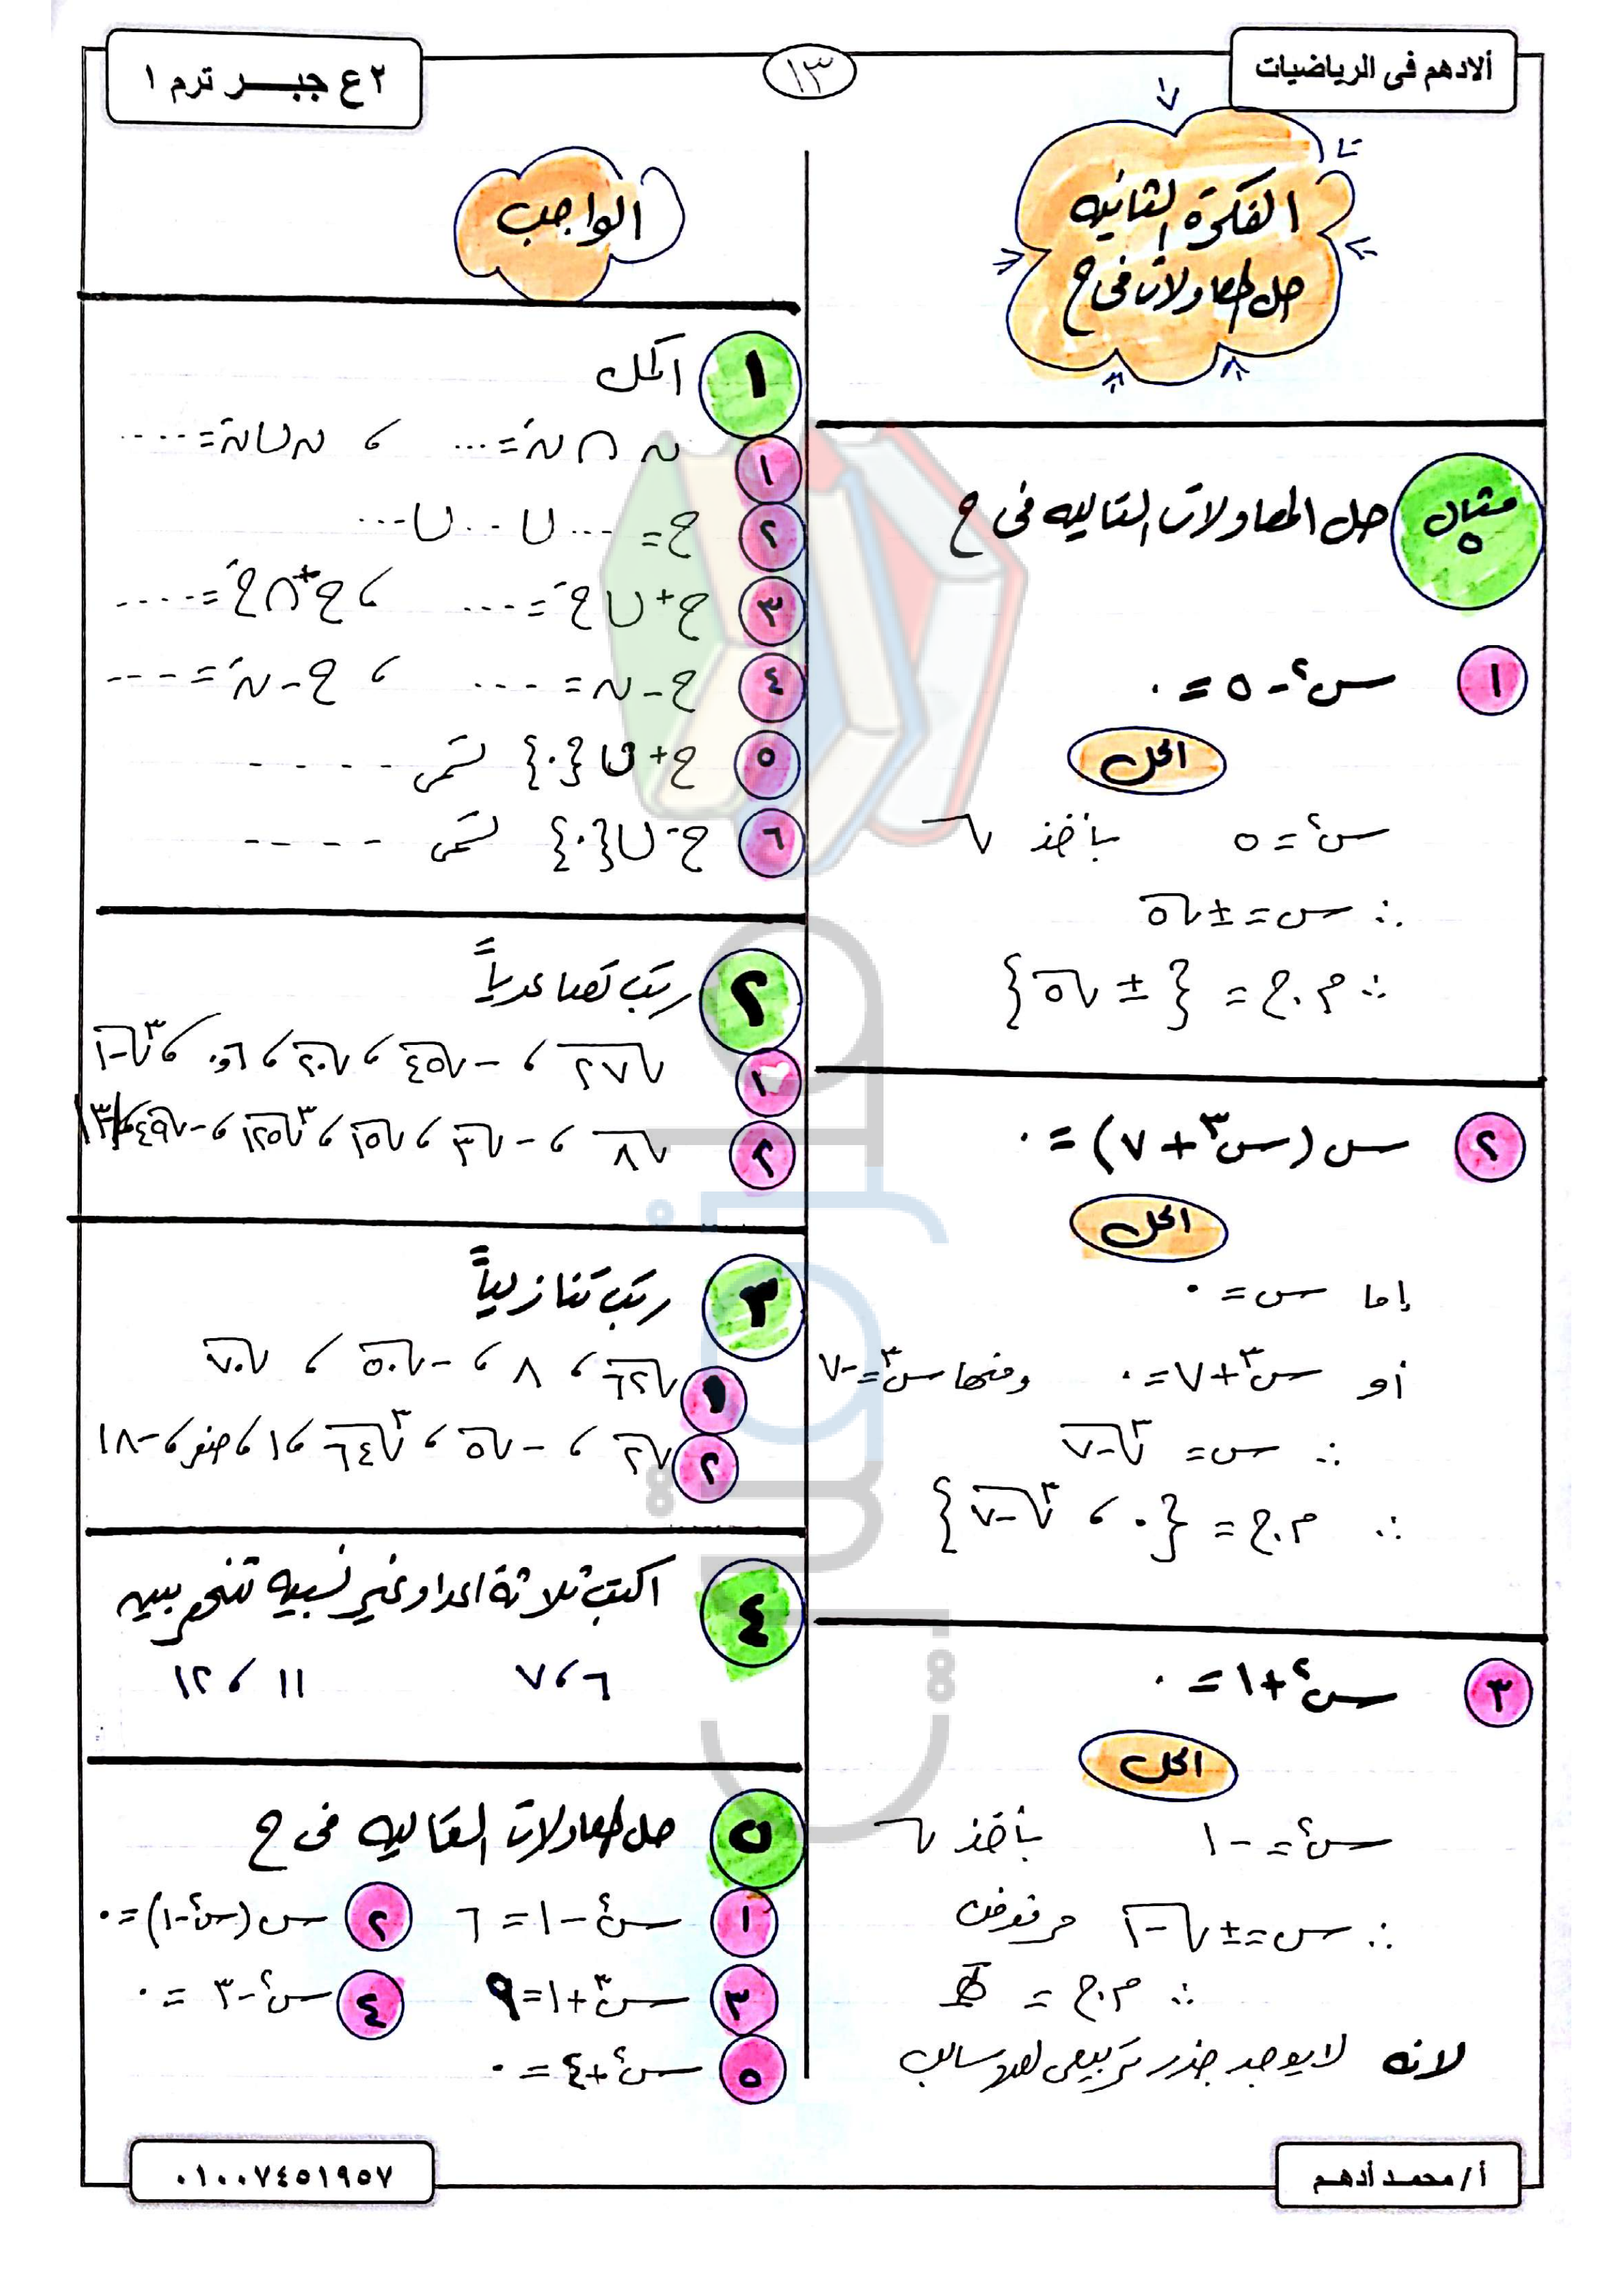 ألادهم فى الرياضيات
١٣
٢ع جبر ترم ١
الفكرة الثانيه
حل المعادلات فى ح
مثال ٥
حل المعادلات التاليه فى ح
١ س٢ - ٥ = ٠
الحل
س٢ = ٥ بأخذ √
∴ س = ± √٥
∴ م.ح = { ± √٥ }
٢ س (س٣ + ٧) = ٠
الحل
إما س = ٠
أو س٣ + ٧ = ٠ ومنها س٣ = -٧
∴ س = ٣√-٧
∴ م.ح = { ٠ ، ٣√-٧ }
٣ س٢ + ١ = ٠
الحل
س٢ = -١ بأخذ √
∴ س = ± √-١ مرفوض
∴ م.ح = Φ
لانه لا يوجد جذر تربيعى لعدد سالب
الواجب
١ اكمل
١ ن ∩ نَ = ... ، ن ∪ نَ = ....
٢ ح = ... ∪ ... ∪ ...
٣ ح+ ∪ ح- = .... ، ح+ ∩ ح- = ....
٤ ح - ن = .... ، ح - نَ = ....
٥ ح+ ∪ {٠} تسمى - - - - -
٦ ح- ∪ {٠} تسمى - - - -
٢ رتب تصاعدياً
١ √٢٧ ، -√٤٥ ، √٢٠ ، ٠,٦ ، ٣√-١
٢ √٨ ، -√٣ ، √١٥ ، ٣√١٢٥ ، -√٤٩ ، ١٣
٣ رتب تنازلياً
١ √٦٢ ، ٨ ، -√٥٠ ، √٧٠
٢ √٢ ، -√٥ ، ٣√٦٤ ، ١ ، صفر ، -١٨
٤ اكتب ثلاثة اعداد غير نسبيه تنحصر بين
٦ ، ٧ ١١ ، ١٢
٥ حل المعادلات التاليه فى ح
١ س٢ - ١ = ٦ ٢ س (س٢ - ١) = ٠
٣ س٣ + ١ = ٩ ٤ س٢ - ٣ = ٠
٥ س٢ + ٤ = ٠
أ/ محمد أدهم
٠١٠٠٧٤٥١٩٥٧